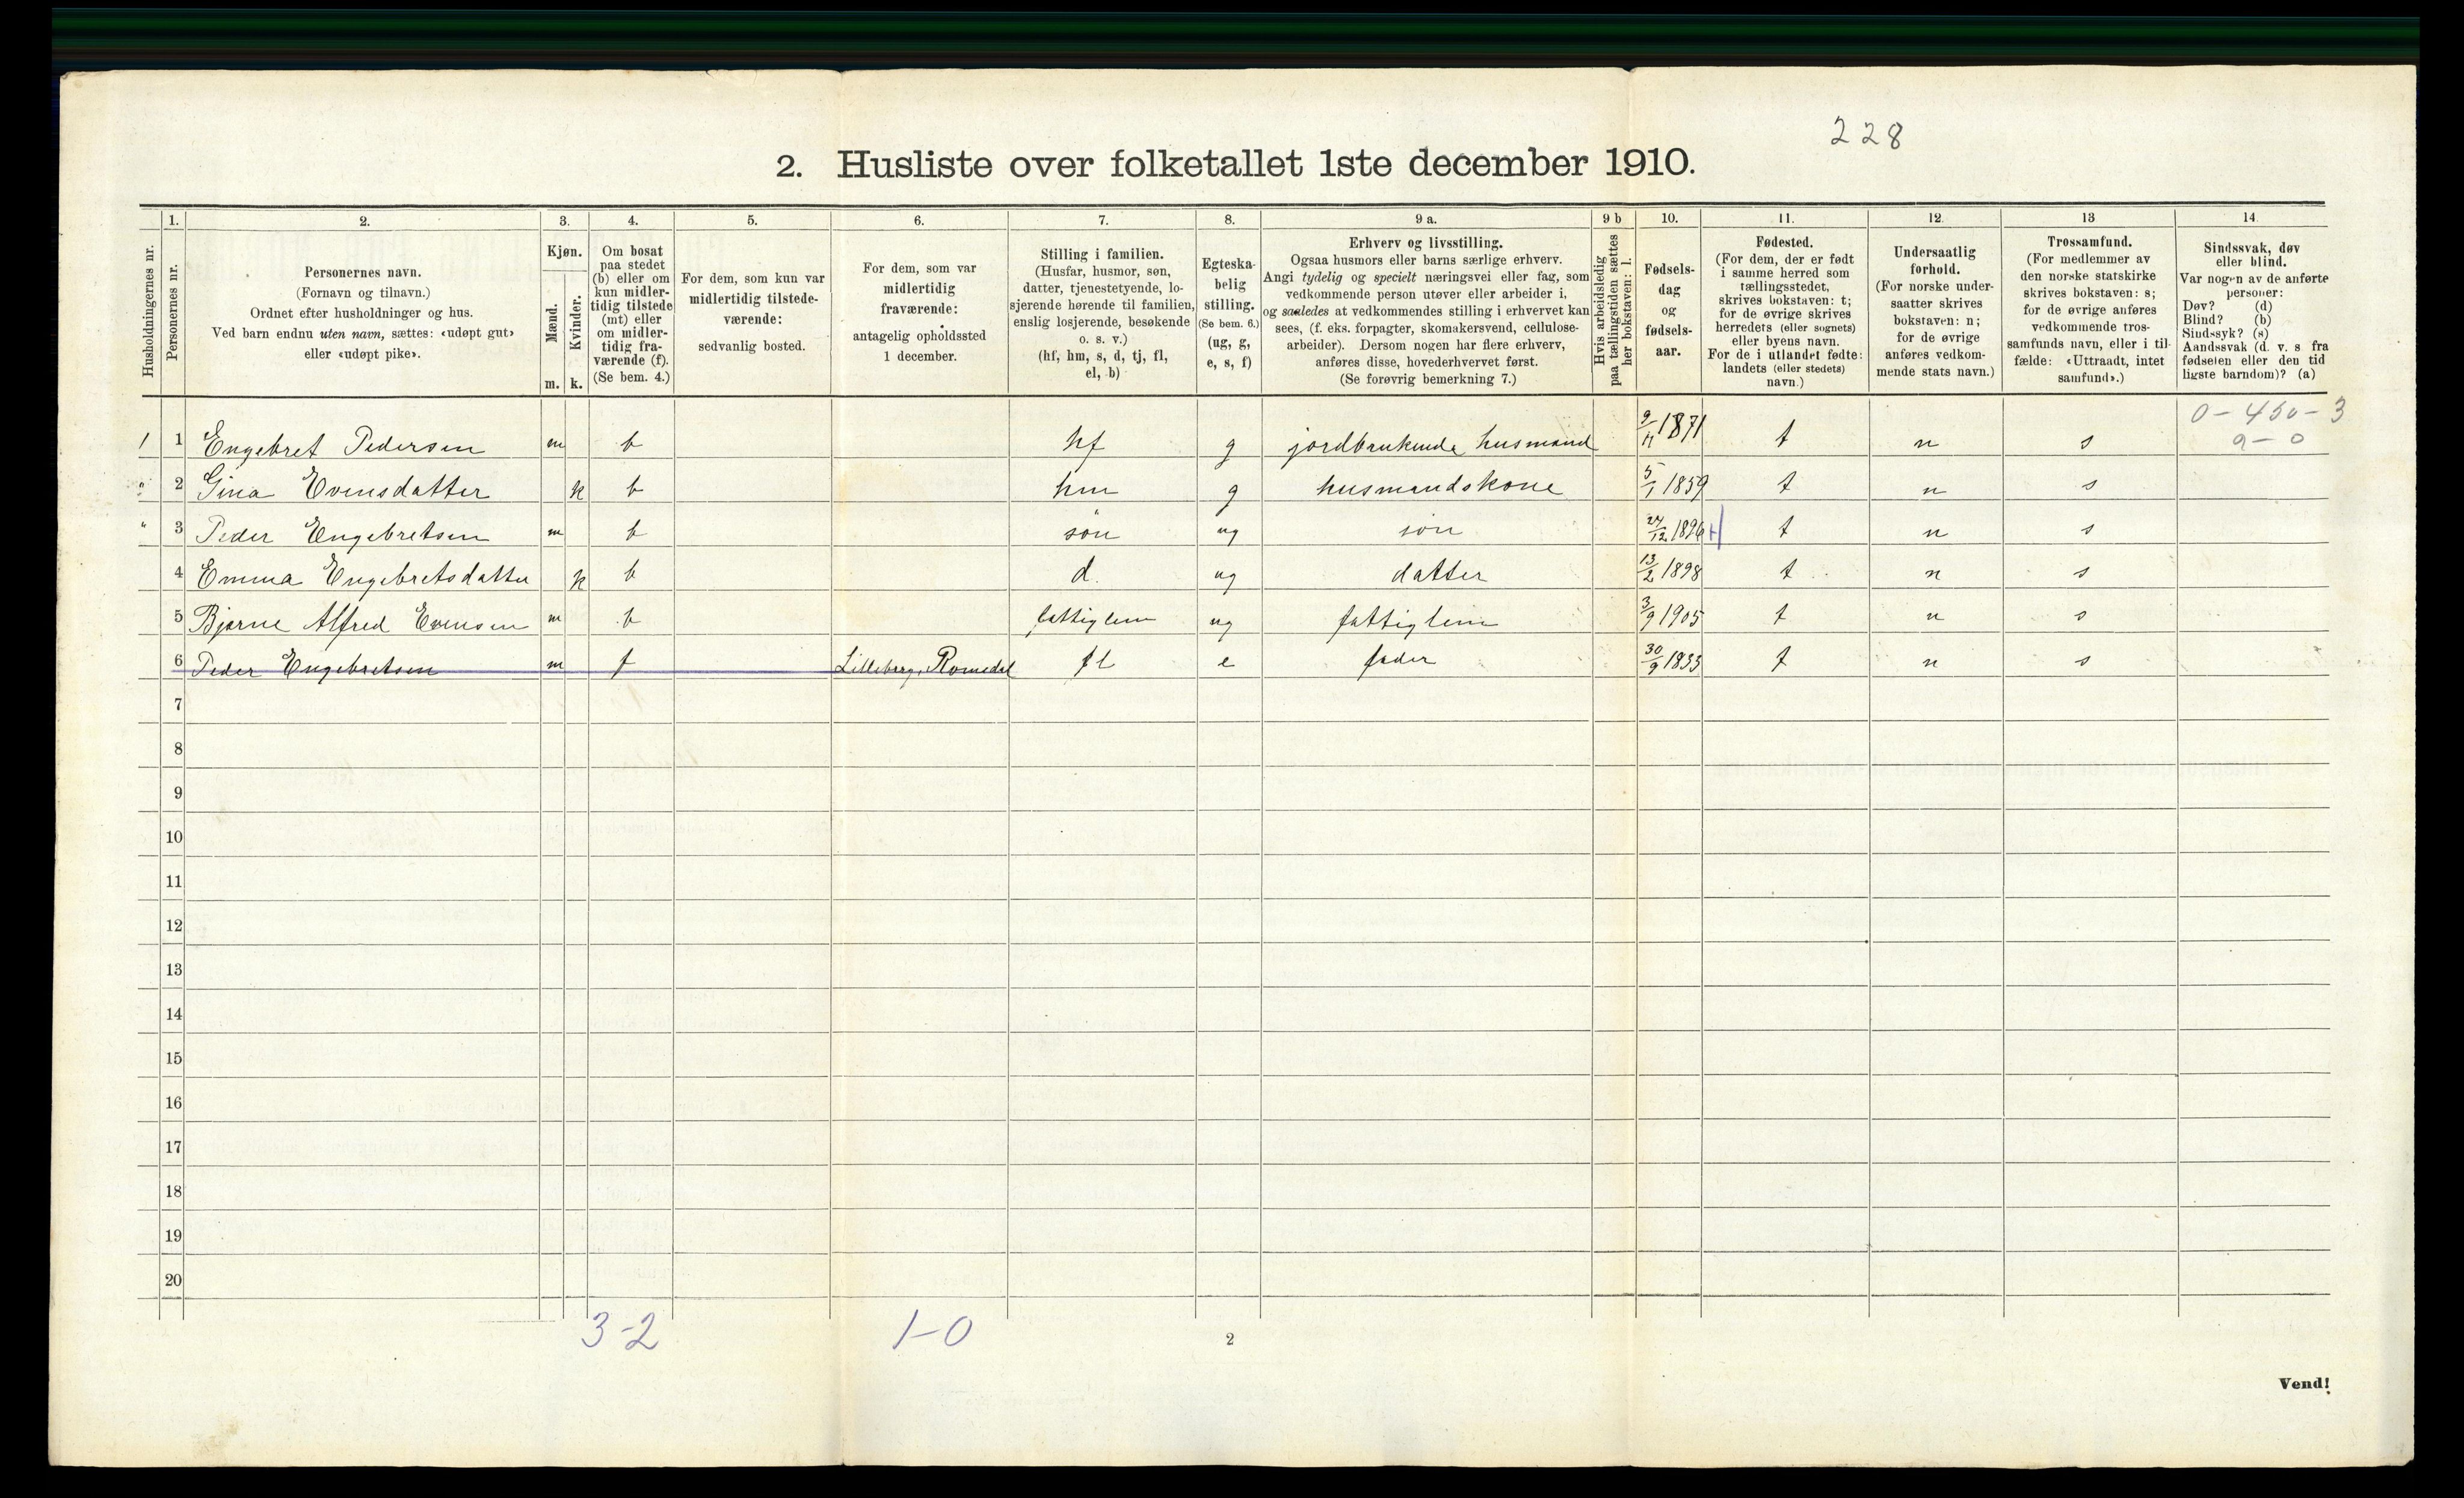 228
2. Husliste over folketallet 1ste december 1910.
1. 2. 3. 4. 5. 6. 7. 8. 9 a. 9 b 10. 11. 12. 13 14
Husholdningernes nr.
Personernes nr.
Personernes navn.
(Fornavn og tilnavn.)
Ordnet efter husholdninger og hus.
Ved barn endnu uten navn, sættes: «udøpt gut»
eller «udøpt pike».
Kjøn.
Mænd.
Kvinder.
m. k.
Om bosat
paa stedet
(b) eller om
kun midler-
tidig tilstede
(mt) eller
om midler-
tidig fra-
værende (f).
(Se bem. 4.)
For dem, som kun var
midlertidig tilstede-
værende:
sedvanlig bosted.
For dem, som var
midlertidig
fraværende:
antagelig opholdssted
1 december.
Stilling i familien.
(Husfar, husmor, søn,
datter, tjenestetyende, lo-
sjerende hørende til familien,
enslig losjerende, besøkende
o. s. v.)
(hf, hm, s, d, tj, fl,
el, b)
Egteska-
belig
stilling.
(Se bem. 6.)
(ug, g,
e, s, f)
Erhverv og livsstilling.
Ogsaa husmors eller barns særlige erhverv.
Angi tydelig og specielt næringsvei eller fag, som
vedkommende person utøver eller arbeider i,
og saaledes at vedkommendes stilling i erhvervet kan
sees, (f. eks. forpagter, skomakersvend, cellulose-
arbeider). Dersom nogen har flere erhverv,
anføres disse, hovederhvervet først.
(Se forøvrig bemerkning 7.)
Hvis arbeidsledig
paa tællingstiden sættes
her bokstaven: l.
Fødsels-
dag
og
fødsels-
aar.
Fødested.
(For dem, der er født
i samme herred som
tællingsstedet,
skrives bokstaven: t;
for de øvrige skrives
herredets (eller sognets)
eller byens navn.
For de i utlandet fødte:
landets (eller stedets)
navn.)
Undersaatlig
forhold.
(For norske under-
saatter skrives
bokstaven: n;
for de øvrige
anføres vedkom-
mende stats navn.)
Trossamfund.
(For medlemmer av
den norske statskirke
skrives bokstaven: s;
for de øvrige anføres
vedkommende tros-
samfunds navn, eller i til-
fælde: «Uttraadt, intet
samfund».)
Sindssvak, døv
eller blind.
Var nogen av de anførte
personer:
Døv? (d)
Blind? (b)
Sindssyk? (s)
Aandssvak (d. v. s. fra
fødselen eller den tid
ligste barndom)? (a)
0-450-3
9-0
1 1 Engebret Pedersen m b hf g jordbrukende husmand 9/11 1871 t n s
" 2 Gina Evensdatter k b hm g husmandskone 5/1 1859 t n s
" 3 Peder Engebretsen m b søn ug søn 24/12 1896 t n s
4 Emma Engebretsdatter k b d. ug datter 13/2 1898 t n s
5 Bjarne Alfred Evensen m b fattiglem ug fattiglem 3/9 1905 t n s
6 Peder Engebretsen m f Lilleberg, Romedal fl e fader 30/9 1833 t n s
7
8
9
10
11
12
13
14
15
16
17
18
19
20
3-2 1-0
2
Vend!